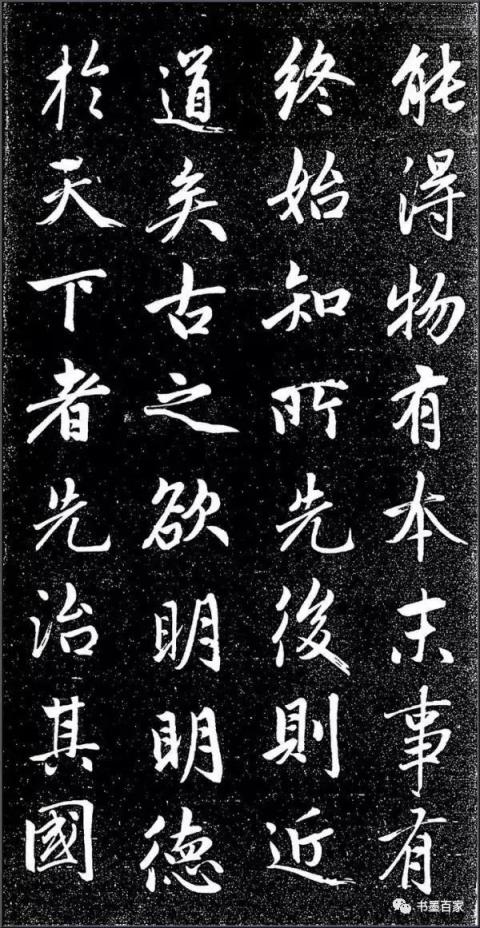 能得物有本末事有
終始知所先後則近
道矣古之欲明明德
於天下者先治其國
书墨百家